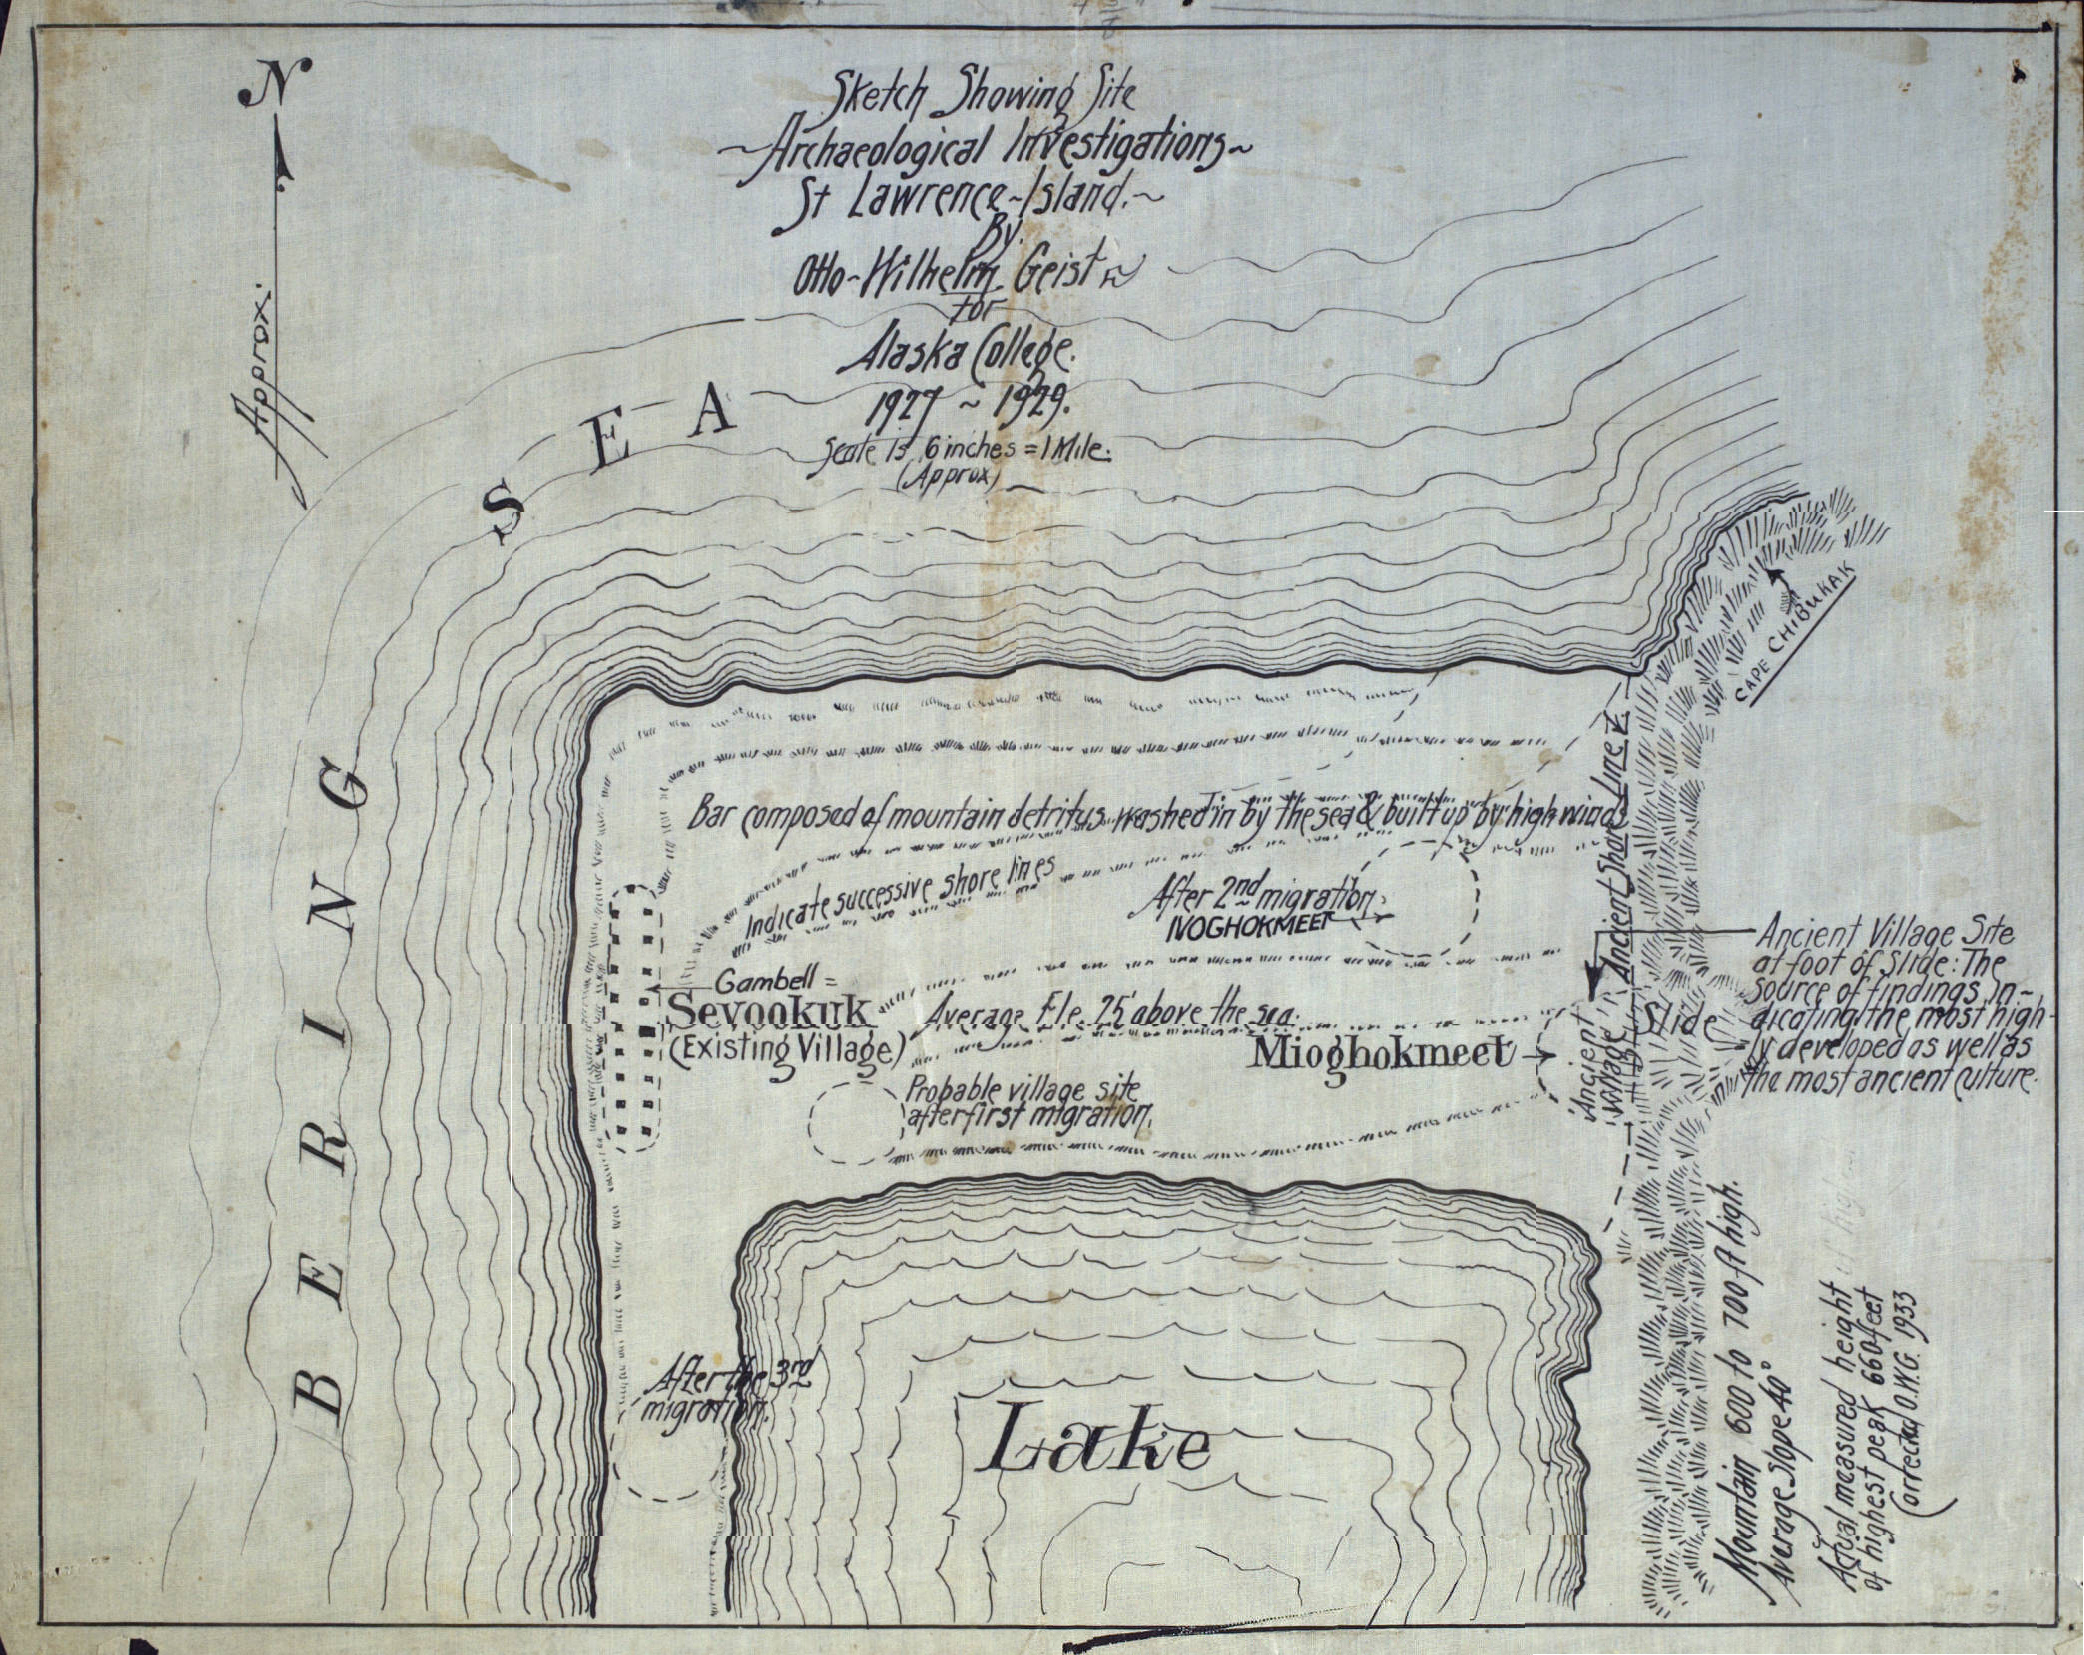 N
Approx.
Sketch Showing Site
~Archaeological Investigations~
St Lawrence~Island.~
By.
Otto~Wilhelm Geist
for
Alaska College.
1927 ~ 1929.
Scale is 6 inches = 1 Mile.
(Approx)
BERING SEA
CAPE CHIBUKAK
Ancient Shore Line
Bar composed of mountain detritus washed in by the sea & built up by high winds
Indicate successive shore lines
After 2nd migration.
IVOGHOKMEET
Gambell =
Sevookuk
(Existing Village)
Average Ele. 25' above the sea.
Mioghokmeet
Probable village site
after first migration.
Ancient
Village
Slide
Ancient Village Site
at foot of Slide: The
source of findings in-
dicating the most high-
ly developed as well as
the most ancient culture.
After the 3rd
migration.
Lake
Mountain 600 to 700 ft high.
Average Slope 40°
Actual measured height
of highest peak 660 feet
Corrected O.W.G. 1933